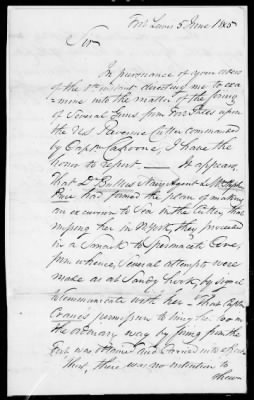 Fort Lewis 5 June 1805
Sir
In pursuance of your orders
of the 1st instant directing me to exa-
mine into the matter of the firing
of Several Guns from Fort upon
the US Revenue Cutter commanded
by Captn Cahoone, I have the
honor to report — It appears,
that Dr Bullus Navy Agent &
had formed the plan of making
an excursion to Sea in the Cutter, that
missing her in NYork, they proceed
in a Smack to Spermaceti Cove,
from whence, Several attempts were
made as at Sandy hook, by signal
to Communicate with her — that Captn
Cranes permission to bring her too in
the ordinary way by firing from the
Fort was obtained and carried into effect
this, there was no intention to